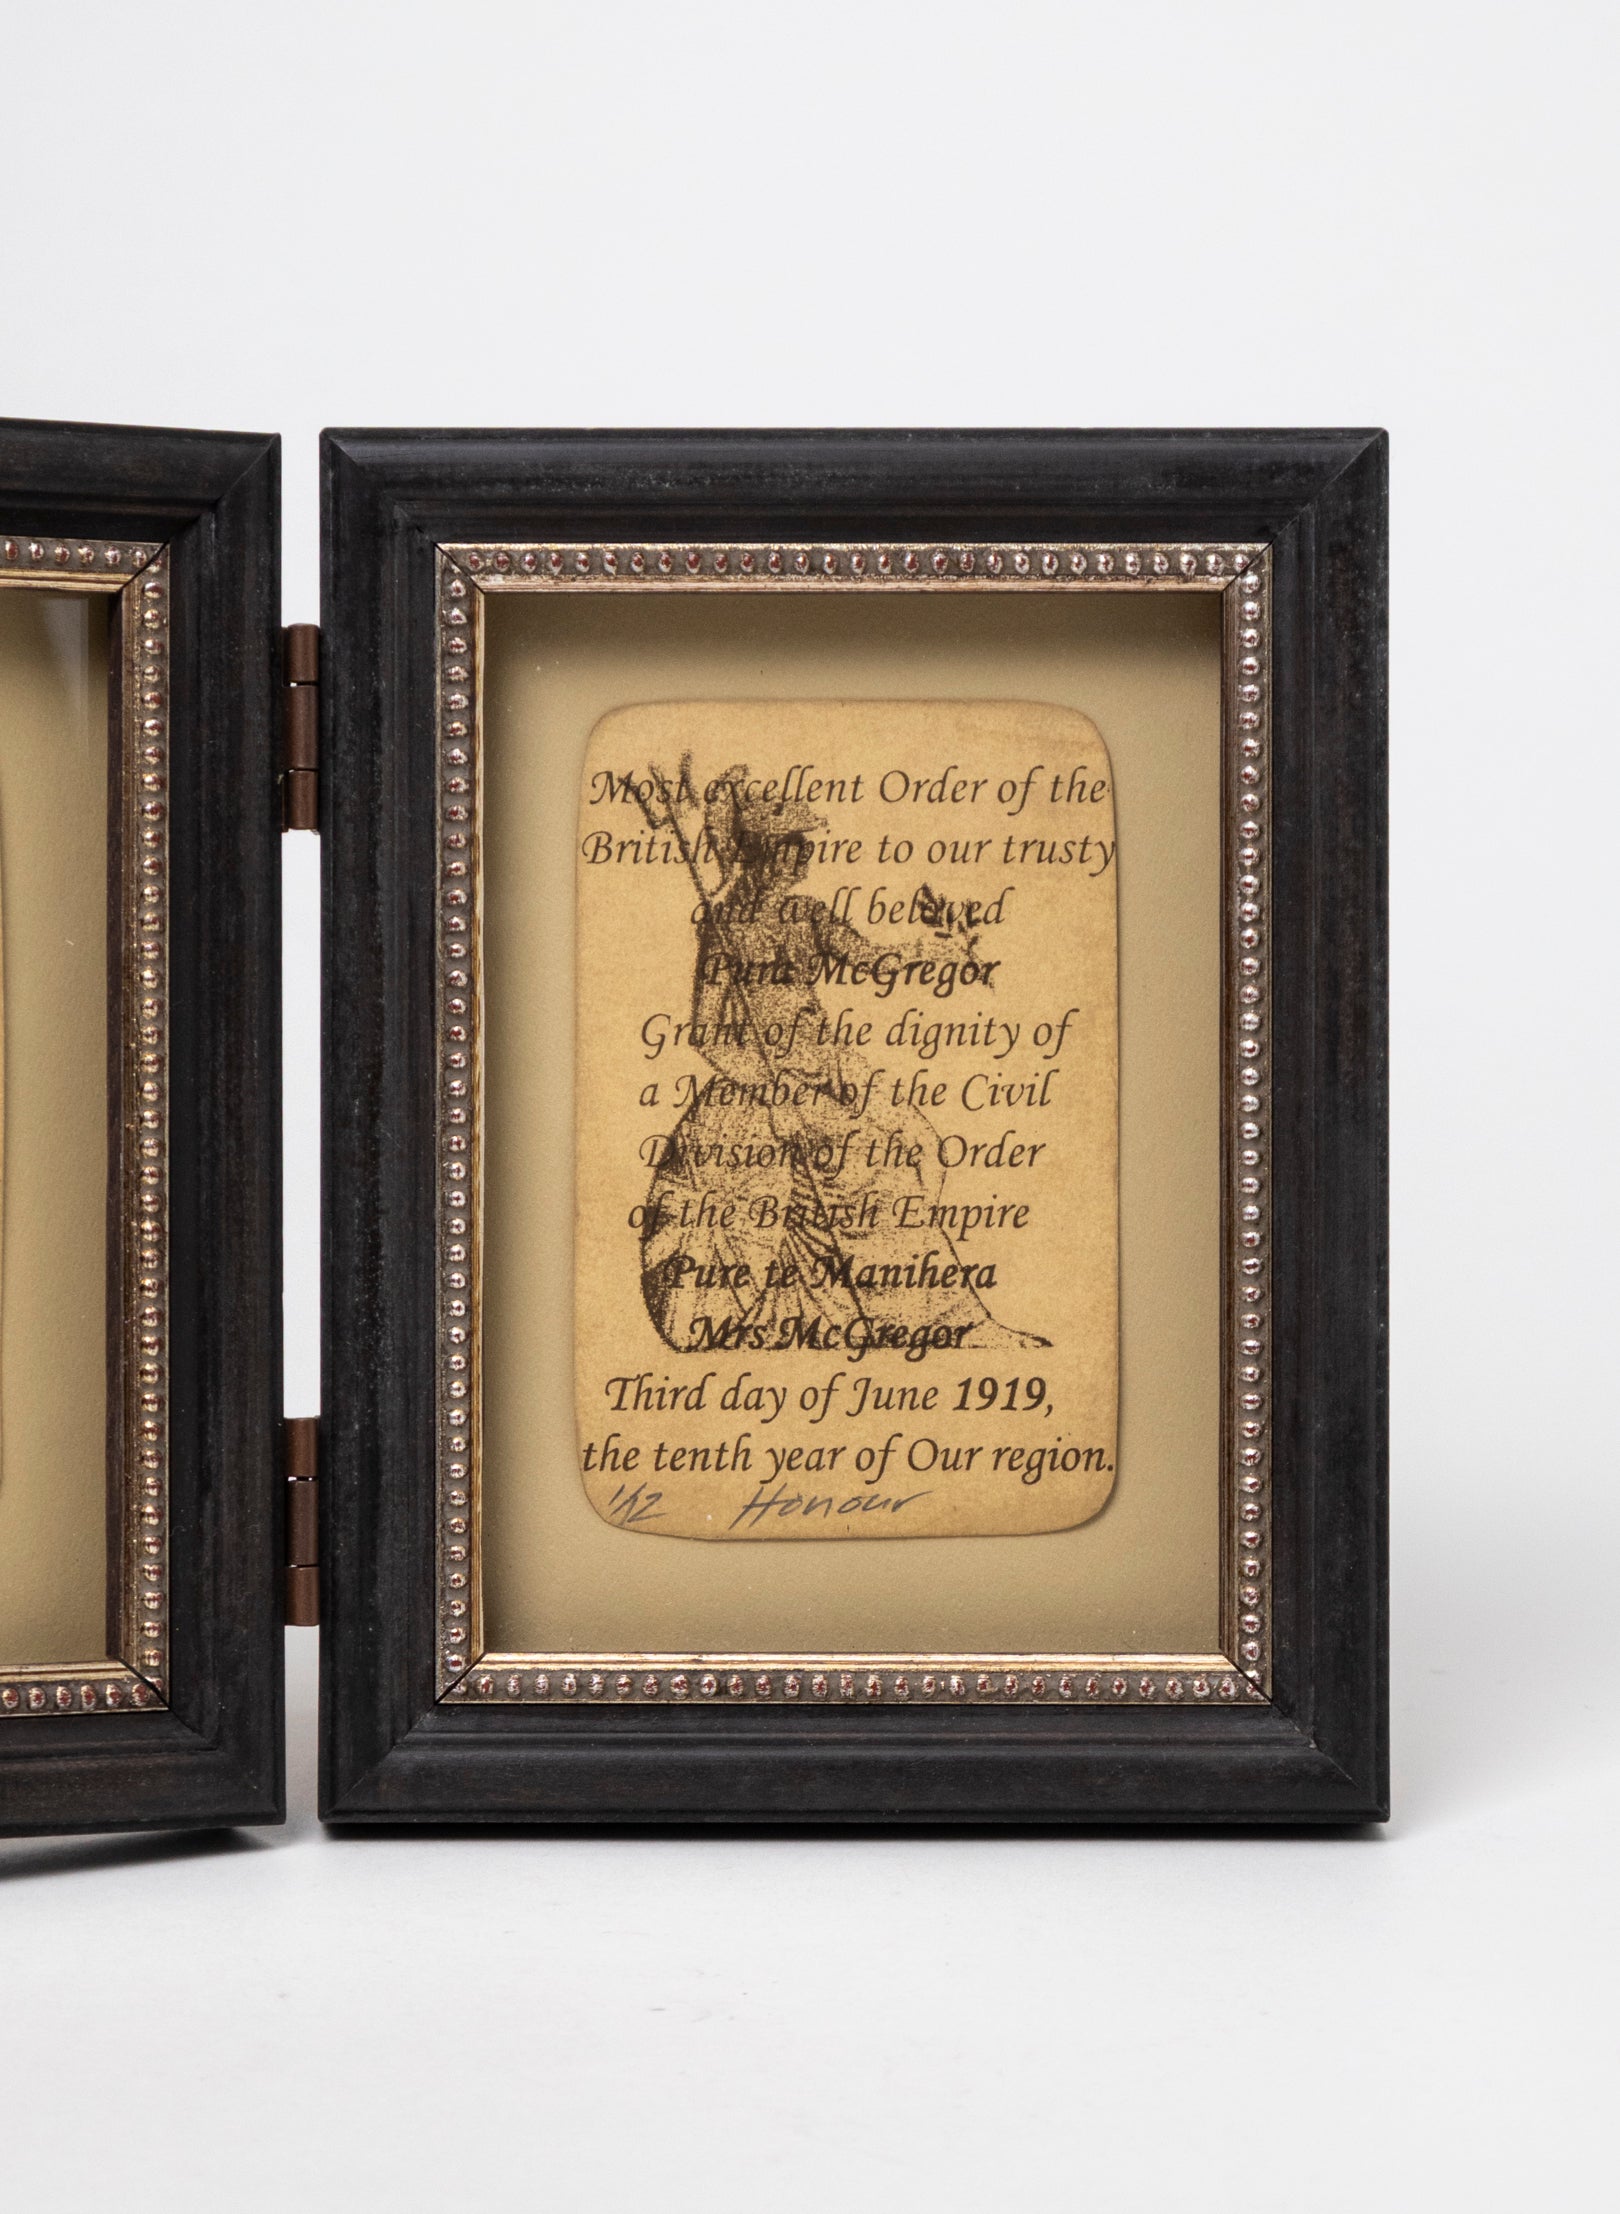 Most excellent Order of the
British Empire to our trusty
and well beloved
Pura McGregor
Grant of the dignity of
a Member of the Civil
Division of the Order
of the British Empire
Pure te Manihera
Mrs McGregor
Third day of June 1919,
the tenth year of Our region.
1/12 Honour